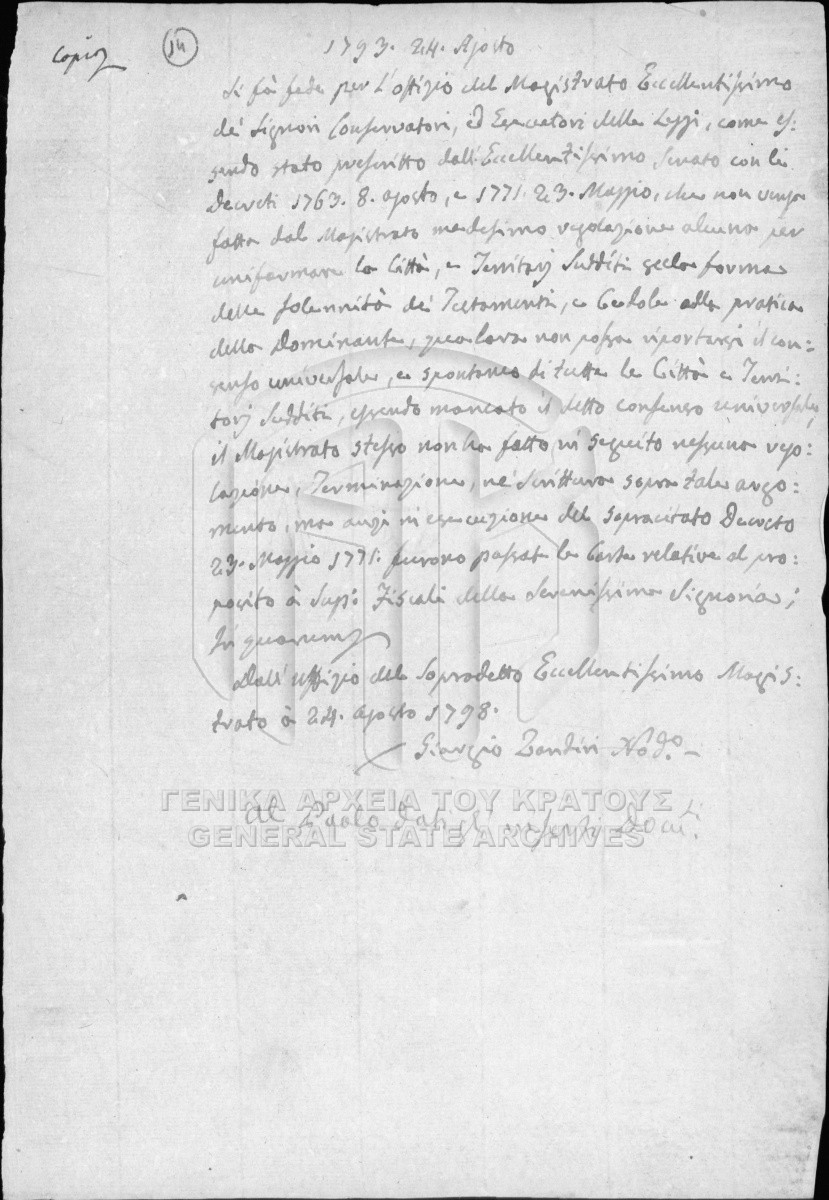 Copia
14
1793. 24. Agosto
Si fà fede per l'offizio del Magistrato Eccellentissimo
de' Signori Conservatori, ed Esecutori delle Leggi, come es:
sendo stato prescritto dall'Eccellentissimo Senato con li
Decreti 1763. 8. agosto, e 1771. 23. Maggio, che non venga
fatta dal Magistrato medesimo regolazione alcuna per
uniformare le Città, e Territorj Sudditi nella forma
delle solennità de' Testamenti, e Cedole alla pratica
della Dominante, qualora non possa riportarsi il con:
senso universale, e spontaneo di tutte le Città e Terri:
torj Sudditi, essendo mancato il detto consenso universale,
il Magistrato stesso non ha fatto in seguito nessuna rego:
lazione, Terminazione, nè Scrittura sopra tale argo:
mento, ma anzi in esecuzione del sopracitato Decreto
23. Maggio 1771. furono passate le Carte relative al pro:
posito à Supp: Fiscali della Serenissima Signoria;
In quorum
Dall'Uffizio del Sopradetto Eccellentissimo Magis:
trato à 24. agosto 1798.
Giorgio Bandini Nod.º
al Paolo
ΓΕΝΙΚΑ ΑΡΧΕΙΑ ΤΟΥ ΚΡΑΤΟΥΣ
GENERAL STATE ARCHIVES